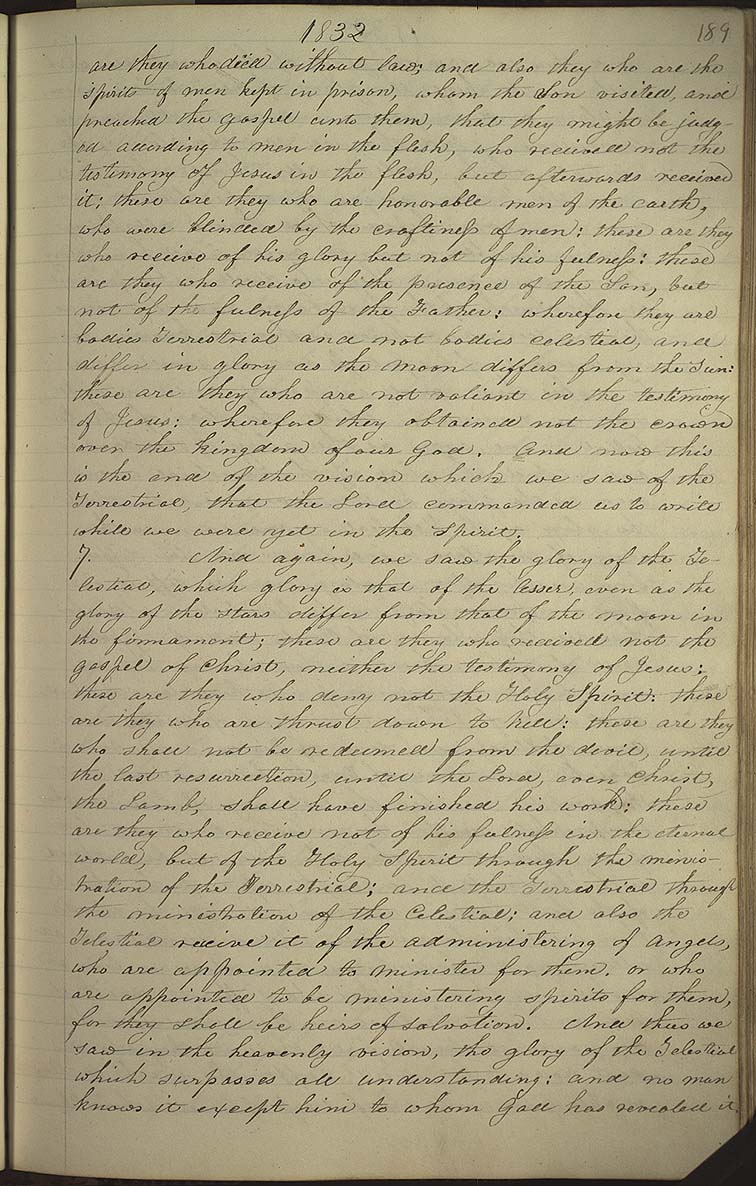 1832
189
are they who died without law; and also they who are the
spirits of men kept in prison, whom the Son visited, and
preached the gospel unto them, that they might be judg-
ed according to men in the flesh, who received not the
testimony of Jesus in the flesh, but afterwards received
it; these are they who are honorable men of the earth,
who were blinded by the craftiness of men: these are they
who receive of his glory but not of his fulness: these
are they who receive of the presence of the Son, but
not of the fulness of the Father: wherefore they are
bodies Terrestrial and not bodies celestial, and
differ in glory as the moon differs from the Sun:
these are they who are not valiant in the testimony
of Jesus: wherefore they obtained not the crown
over the kingdom of our God. And now this
is the end of the vision which we saw of the
Terrestrial, that the Lord commanded us to write
while we were yet in the Spirit.
7. And again, we saw the glory of the Te-
lestial, which glory is that of the lesser, even as the
glory of the stars differ from that of the moon in
the firmament; these are they who received not the
gospel of Christ, neither the testimony of Jesus:
these are they who deny not the Holy Spirit: these
are they who are thrust down to hell: these are they
who shall not be redeemed from the devil, until
the last resurrection, until the Lord, even Christ,
the Lamb, shall have finished his work: these
are they who receive not of his fulness in the eternal
world, but of the Holy Spirit through the minis-
tration of the Terrestrial; and the Terrestrial through
the ministration of the Celestial; and also the
Telestial recive it of the administering of angels,
who are appointed to minister for them. or who
are appointed to be ministering spirits for them,
for they shall be heirs of salvation. And thus we
saw in the heavenly vision, the glory of the Telestial
which surpasses all understanding: and no man
knows it except him to whom God has revealed it.